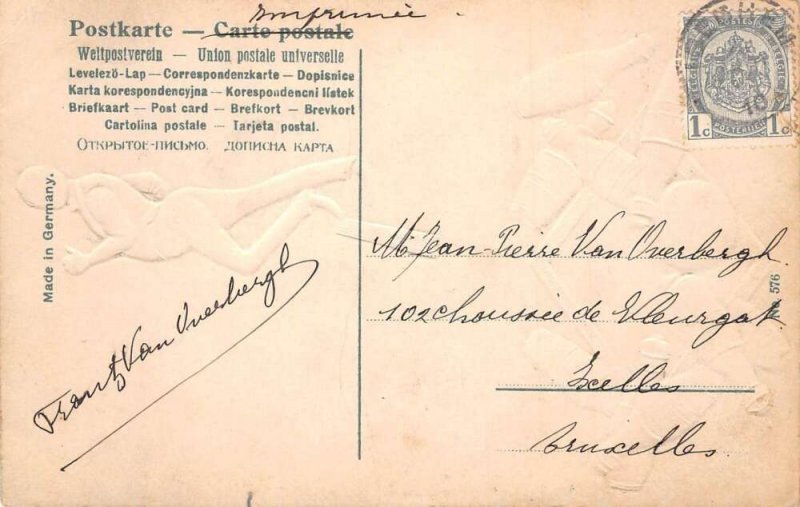 Imprimée
Postkarte — Carte postale
Weltpostverein — Union postale universelle
Levelező-Lap — Correspondenzkarte — Dopisnice
Karta korespondencyjna — Korespondencni lístek
Briefkaart — Post card — Brefkort — Brevkort
Cartolina postale — Tarjeta postal.
Открытое-письмо. Дописна карта
Made in Germany.
Frantz Van Overbergh
Mr Jean-Pierre Van Overbergh.
102 choussée de Vleurgat
Ixelles
Bruxelles
576
1c POSTERIJEN 1c
10